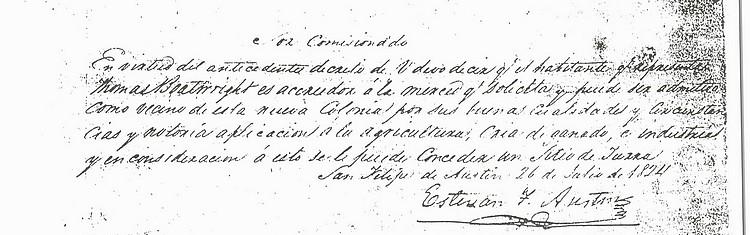 Comisionado
En virtud del antecedente decreto de V devo decir q.e el habitante q.e representa
Thomas Boatwright es acreedor á la merced q.e solicita y puede ser admitido
como vecino de esta nueva Colonia por sus buenas cualidades y Circunstan
cias y notoria aplicacion a la agricultura, Cria de ganado, é industria
y en consideracion á esto se le puede Conceder un Sitio de Tierra
San Felipe de Austin 26 de Julio de 1824
Estevan F. Austin